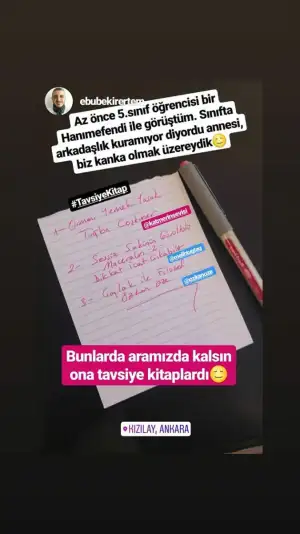 ebubekirertem
Az önce 5.sınıf öğrencisi bir
Hanımefendi ile görüştüm. Sınıfta
arkadaşlık kuramıyor diyordu annesi,
biz kanka olmak üzereydik😊
#TavsiyeKitap
1- Günün Yemek
Tuğba Coşkuner
2- Sakin
Maceraları 2
Dikkat
3- Çaylak ile Filozof
Özkan Öze
Bunlarda aramızda kalsın
ona tavsiye kitaplardı😊
KIZILAY, ANKARA